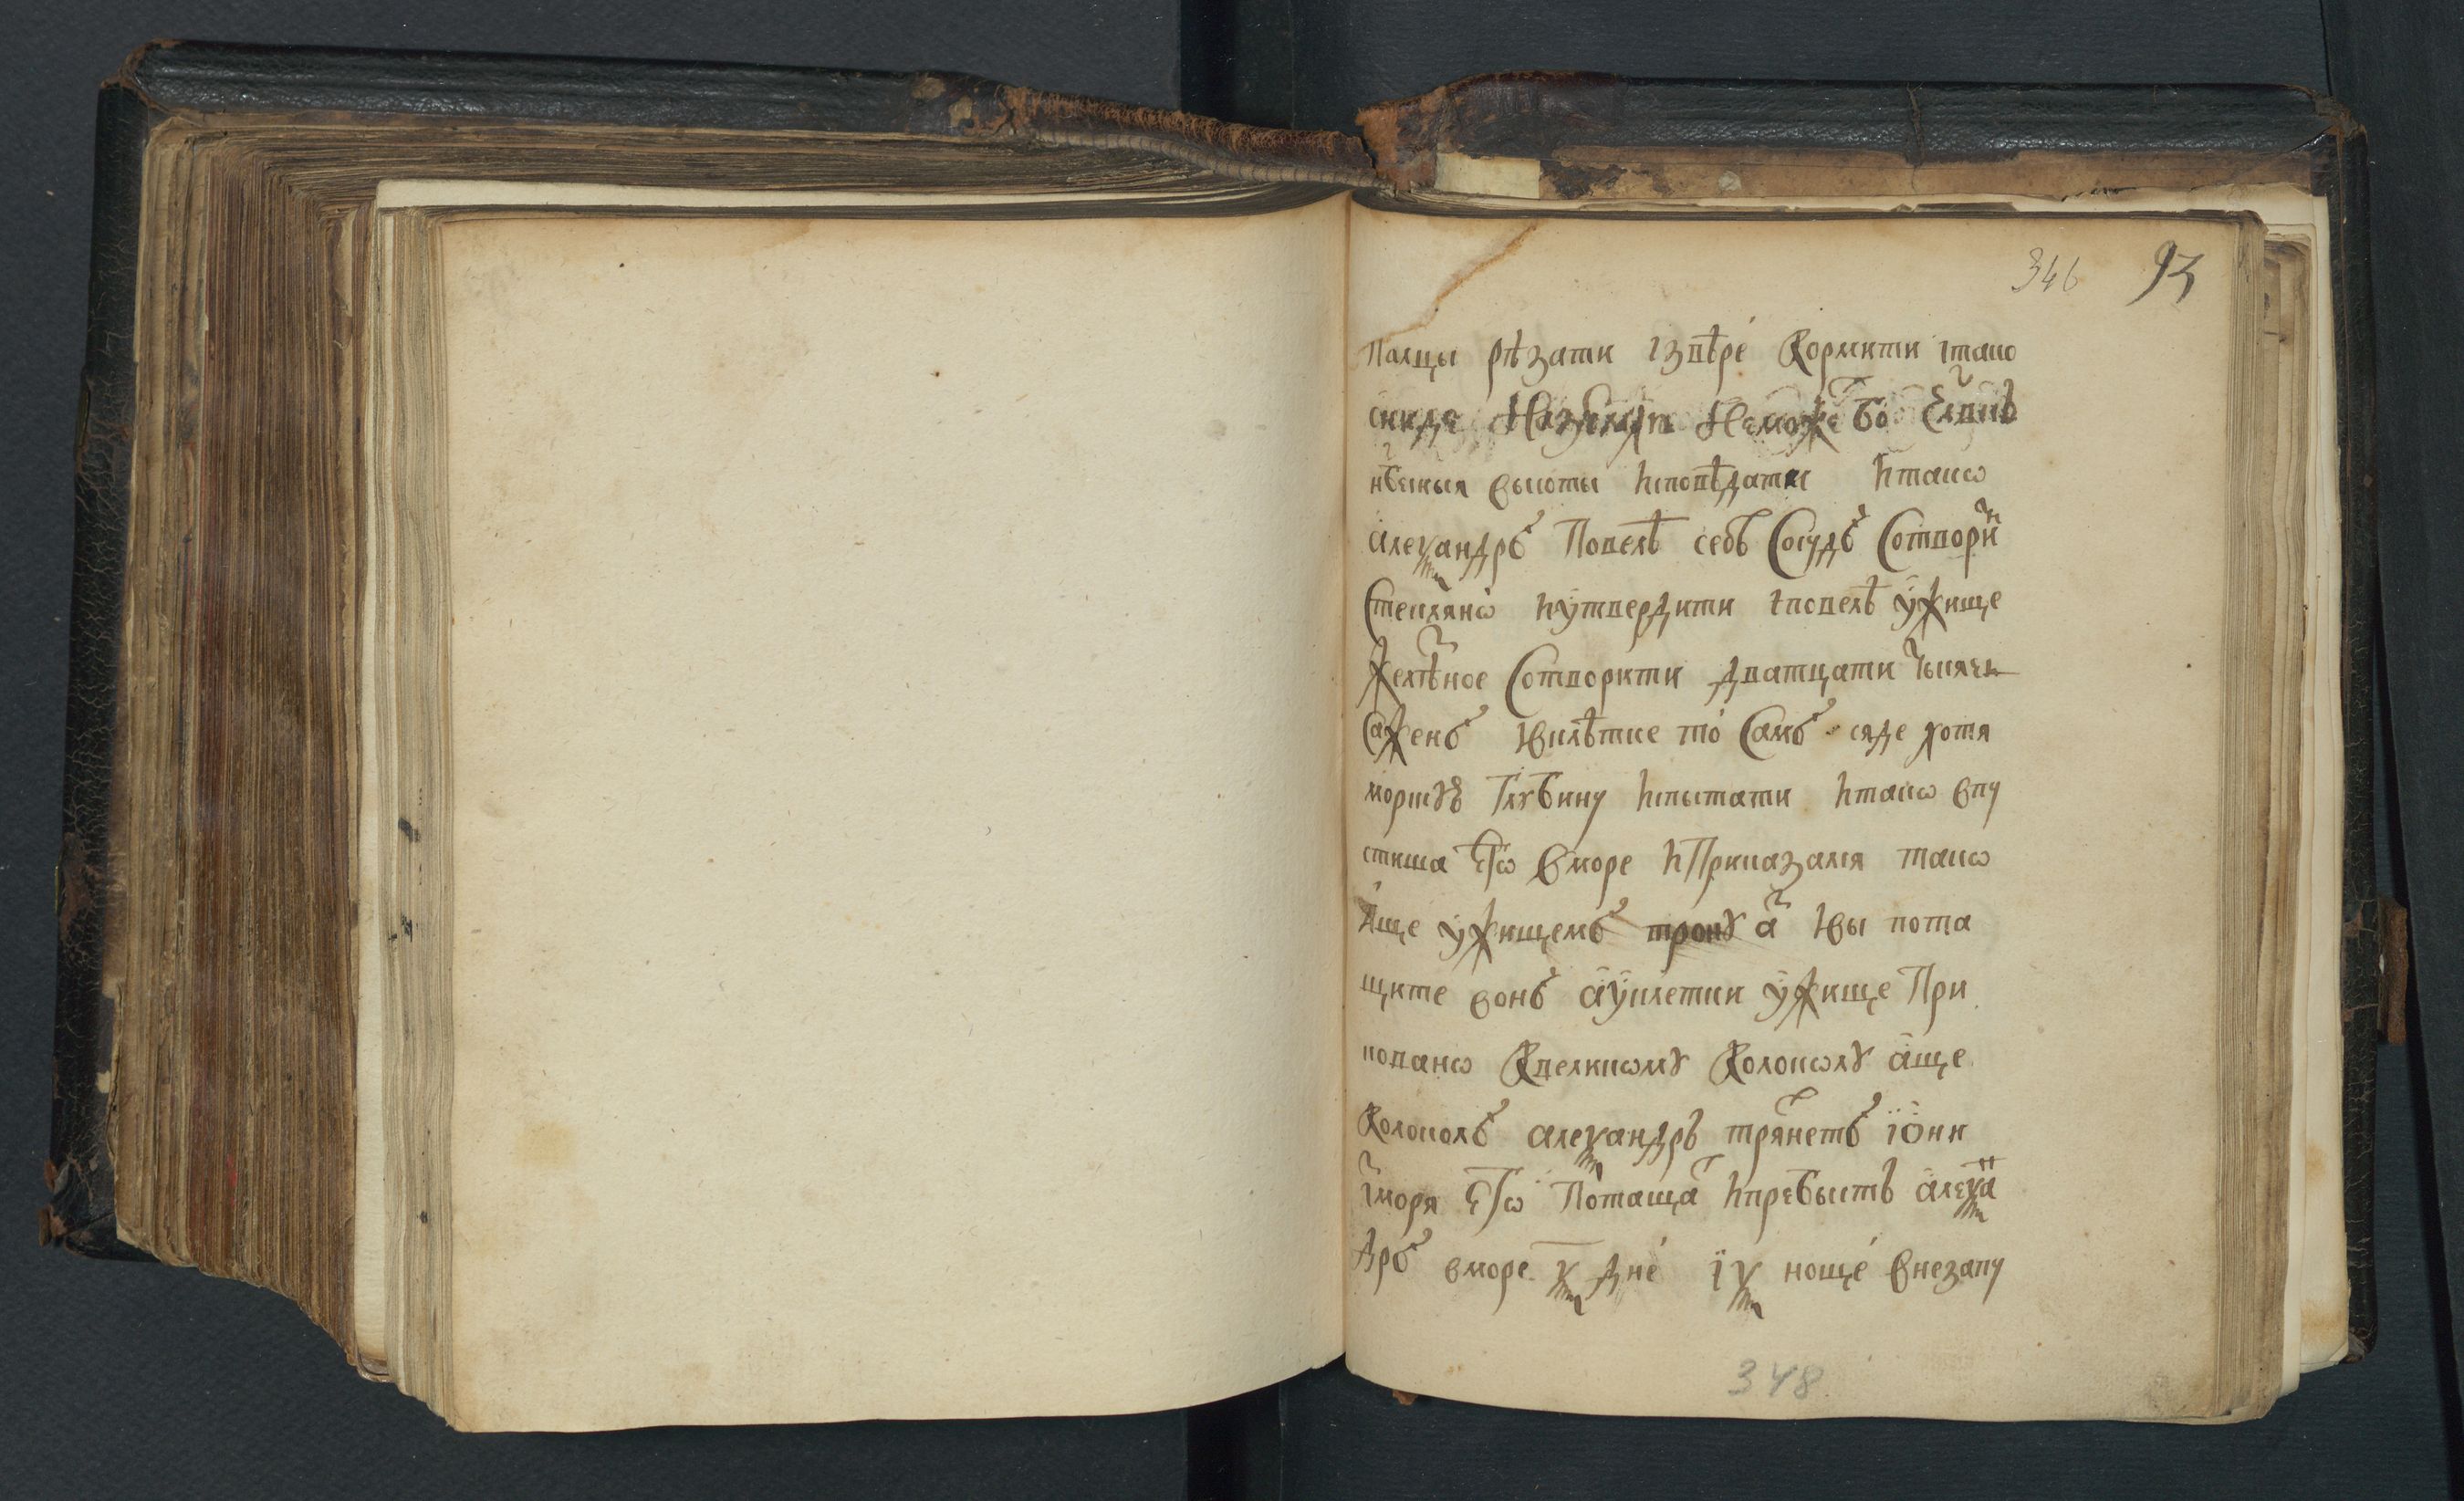 346 93
палцы рѣзати ізвѣре́ кормити ітако
сниде Наземлю Неможе бо чл҃вкъ
нб҃сныя высоты исповѣдати итакѡ
алеѯандръ Повелѣ себѣ Сосудъ Сотвори
Стеклянѡ иутвердити іповелѣ ужище
желѣзное Сотворити дватцати тысячь
Саженъ ивклѣтке то́ Самъ сяде хотя
морскꙋю глꙋбину испытати итакѡ впу
стиша егѡ вморе иПриказался такѡ
Аще ужищемъ тронꙋ а ивы пота
щите вонъ ауклетки ужище При
кованѡ квеликомꙋ колоколꙋ аще
колоколъ алеѯандръ трянетъ іони
ізморя егѡ Поташа ипребысть алеѯан
дръ вморе ѯ҃ дне́ іѯ ноще́ внезапу
348